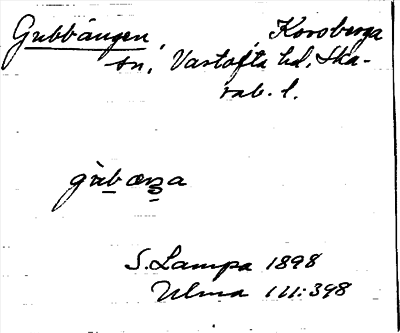 Grubbängen, Korsberga
sn, Vartofta hd, Ska-
rab. l.
grub æŋa
S. Lampa 1898
Ulma 111:398